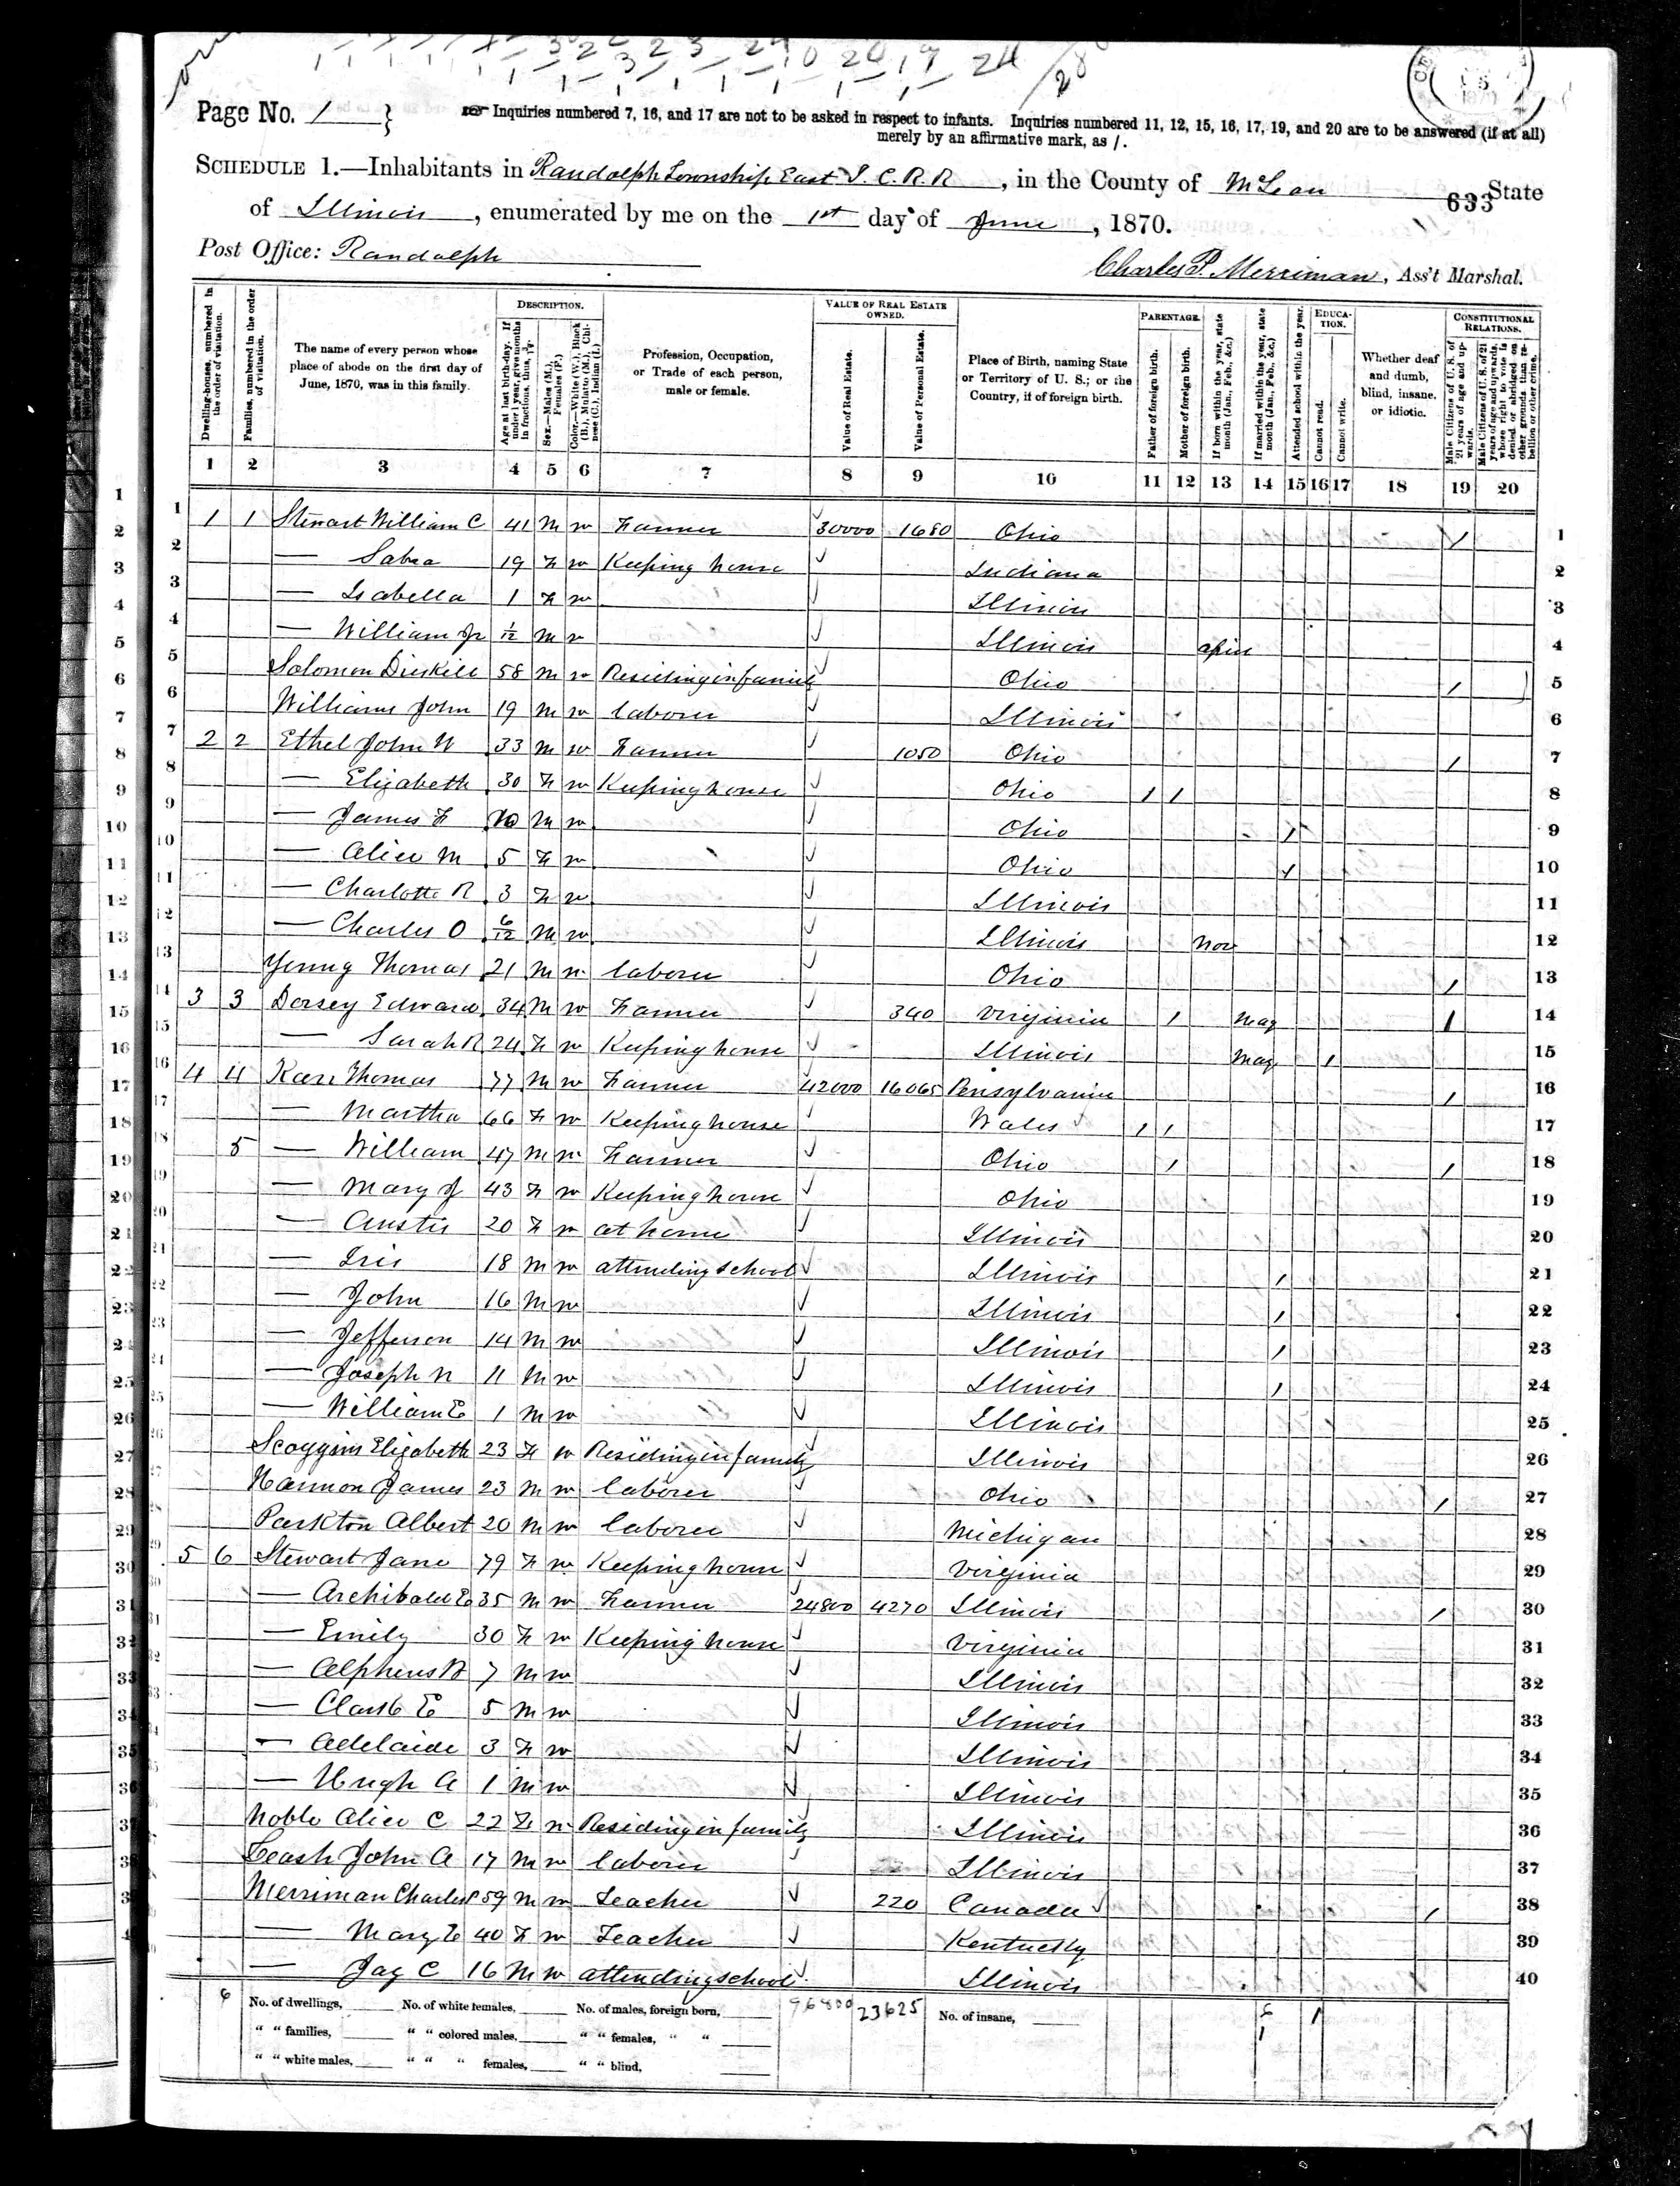 1 1 1 1 1 1 3 2 2 2 3 29 10 20 19 24 / 28
Page No. 1 }
Inquiries numbered 7, 16, and 17 are not to be asked in respect to infants. Inquiries numbered 11, 12, 15, 16, 17, 19, and 20 are to be answered (if at all)
merely by an affirmative mark, as /.
SCHEDULE 1.—Inhabitants in Randolph Township East I. C. R. R, in the County of McLean State
633
of Illinois, enumerated by me on the 1st day of June, 1870.
Post Office: Randolph
Charles P. Merriman, Ass't Marshal.
Dwelling-houses, numbered in the order of visitation.
Families, numbered in the order of visitation.
The name of every person whose place of abode on the first day of June, 1870, was in this family.
DESCRIPTION.
Age at last birth-day. If under 1 year, give months in fractions, thus, 3/12.
Sex.—Males (M.), Females (F.)
Color.—White (W.), Black (B.), Mulatto (M.), Chinese (C.), Indian (I.)
Profession, Occupation, or Trade of each person, male or female.
VALUE OF REAL ESTATE OWNED.
Value of Real Estate.
Value of Personal Estate.
Place of Birth, naming State or Territory of U. S.; or the Country, if of foreign birth.
PARENTAGE.
Father of foreign birth.
Mother of foreign birth.
If born within the year, state month (Jan., Feb., &c.)
If married within the year, state month (Jan., Feb., &c.)
Attended school within the year.
EDUCATION.
Cannot read.
Cannot write.
Whether deaf and dumb, blind, insane, or idiotic.
CONSTITUTIONAL RELATIONS.
Male Citizens of U. S. of 21 years of age and upwards.
Male Citizens of U. S. of 21 years of age and upwards, whose right to vote is denied or abridged on other grounds than rebellion or other crime.
1 2 3 4 5 6 7 8 9 10 11 12 13 14 15 16 17 18 19 20
1 1 1 Stewart William C 41 M W Farmer 30000 1680 Ohio / 1
2 — Sabra 19 F W Keeping house Indiana 2
3 — Isabella 1 F W Illinois 3
4 — William Jr 1/12 M W Illinois April 4
5 Solomon Driskill 58 M W Residing in family Ohio / 5
6 Williams John 19 M W laborer Illinois 6
7 2 2 Ethel John W 33 M W Farmer 1050 Ohio / 7
8 — Elizabeth 30 F W Keeping house Ohio / / 8
9 — James F 10 M W Ohio / 9
10 — Alice M 5 F W Ohio / 10
11 — Charlotte R 3 F W Illinois 11
12 — Charles O 6/12 M W Illinois Nov 12
13 Young Thomas 21 M W laborer Ohio / 13
14 3 3 Dorsey Edward 34 M W Farmer 340 Virginia / May / 14
15 — Sarah R 24 F W Keeping house Illinois May / 15
16 4 4 Karr Thomas 77 M W Farmer 42000 16065 Pensylvania / 16
17 — Martha 66 F W Keeping house Wales / / 17
18 5 — William 47 M W Farmer Ohio / / 18
19 — Mary J 43 F W Keeping house Ohio 19
20 — 20 F W at home Illinois 20
21 — 18 M W attending school Illinois / 21
22 — John 16 M W Illinois / 22
23 — Jefferson 14 M W Illinois / 23
24 — Joseph N 11 M W Illinois / 24
25 — William E 1 M W Illinois 25
26 Scoggins Elizabeth 23 F W Residing in family Illinois 26
27 Harmon James 23 M W laborer Ohio / 27
28 Parkton Albert 20 M W laborer Michigan 28
29 5 6 Stewart Jane 79 F W Keeping house Virginia 29
30 — Archibald E 35 M W Farmer 24800 4270 Illinois / 30
31 — Emily 30 F W Keeping house Virginia 31
32 — Alpheus 7 M W Illinois 32
33 — Clark E 5 M W Illinois 33
34 — Adelaide 3 F W Illinois 34
35 — Hugh A 1 M W Illinois 35
36 Noble Alice C 22 F W Residing in family Illinois 36
37 Leash John A 17 M W laborer Illinois 37
38 Merriman Charles P 59 M W Teacher 220 Canada / 38
39 — Mary E 40 F W Teacher Kentucky 39
40 — Jay C 16 M W attending school Illinois 40
6 No. of dwellings, No. of white females, No. of males, foreign born, 96800 23625 No. of insane, 6 1
" " families, " " colored males, " " females, " " 1
" " white males, " " " females, " " blind,